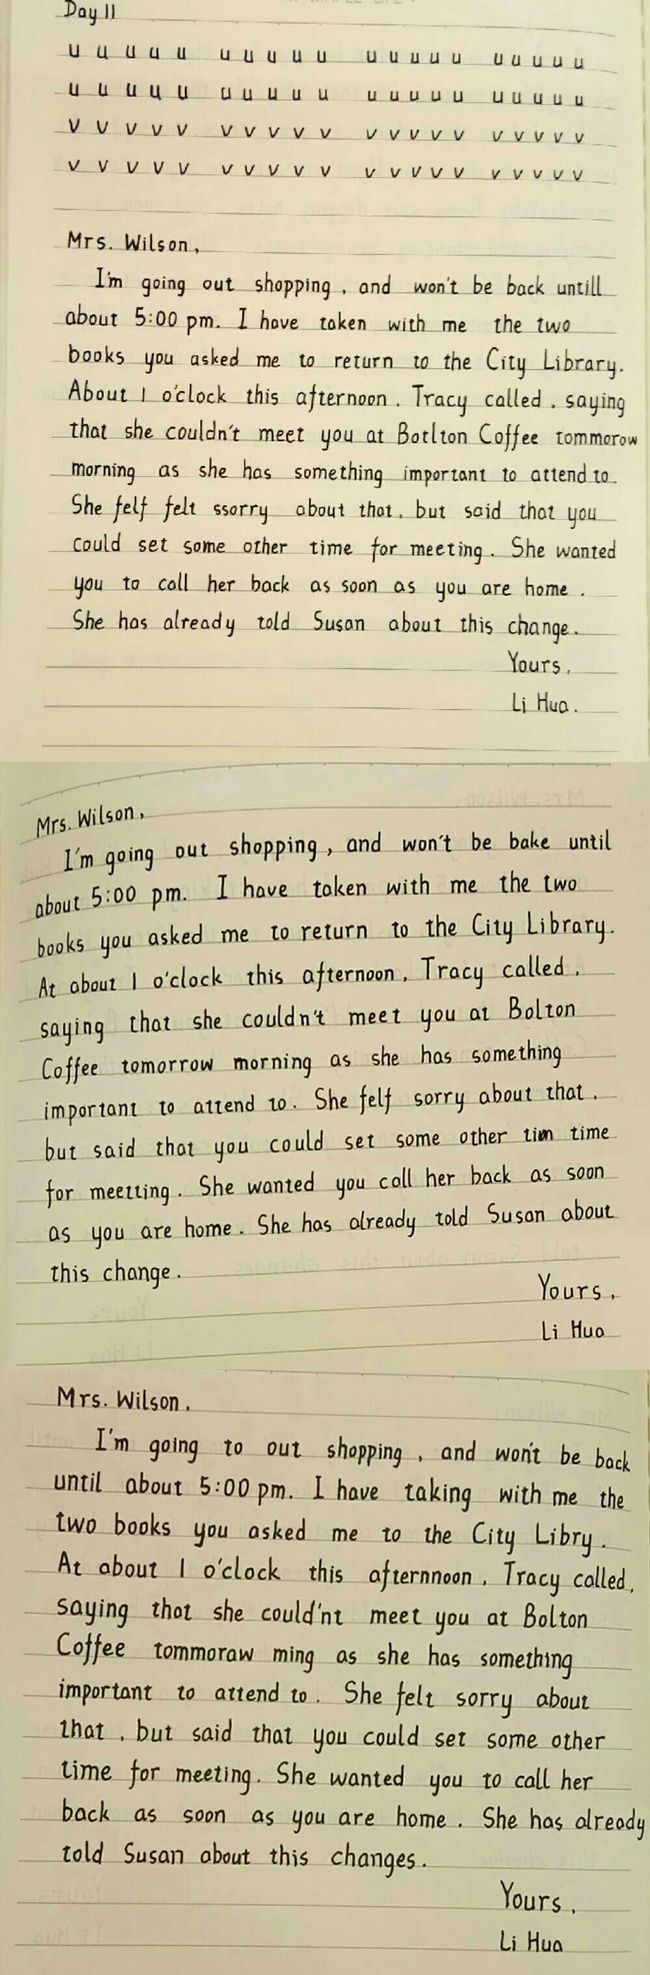 Day 11
u u u u u u u u u u u u u u u u u u u u
u u u u u u u u u u u u u u u u u u u u
v v v v v v v v v v v v v v v v v v v v
v v v v v v v v v v v v v v v v v v v v
Mrs. Wilson,
I'm going out shopping, and won't be back untill
about 5:00 pm. I have taken with me the two
books you asked me to return to the City Library.
About 1 o'clock this afternoon, Tracy called, saying
that she couldn't meet you at Botlton Coffee tommorow
morning as she has something important to attend to.
She felf felt ssorry about that, but said that you
could set some other time for meeting. She wanted
you to call her back as soon as you are home.
She has already told Susan about this change.
Yours,
Li Hua.
Mrs. Wilson,
I'm going out shopping, and won't be bake until
about 5:00 pm. I have taken with me the two
books you asked me to return to the City Library.
At about 1 o'clock this afternoon, Tracy called,
saying that she couldn't meet you at Bolton
Coffee tomorrow morning as she has something
important to attend to. She felf sorry about that,
but said that you could set some other tim time
for meetting. She wanted you call her back as soon
as you are home. She has already told Susan about
this change.
Yours,
Li Hua
Mrs. Wilson,
I'm going to out shopping, and won't be back
until about 5:00 pm. I have taking with me the
two books you asked me to the City Libry.
At about 1 o'clock this afternnoon, Tracy called,
saying that she could'nt meet you at Bolton
Coffee tommoraw ming as she has something
important to attend to. She felt sorry about
that, but said that you could set some other
time for meeting. She wanted you to call her
back as soon as you are home. She has already
told Susan about this changes.
Yours,
Li Hua